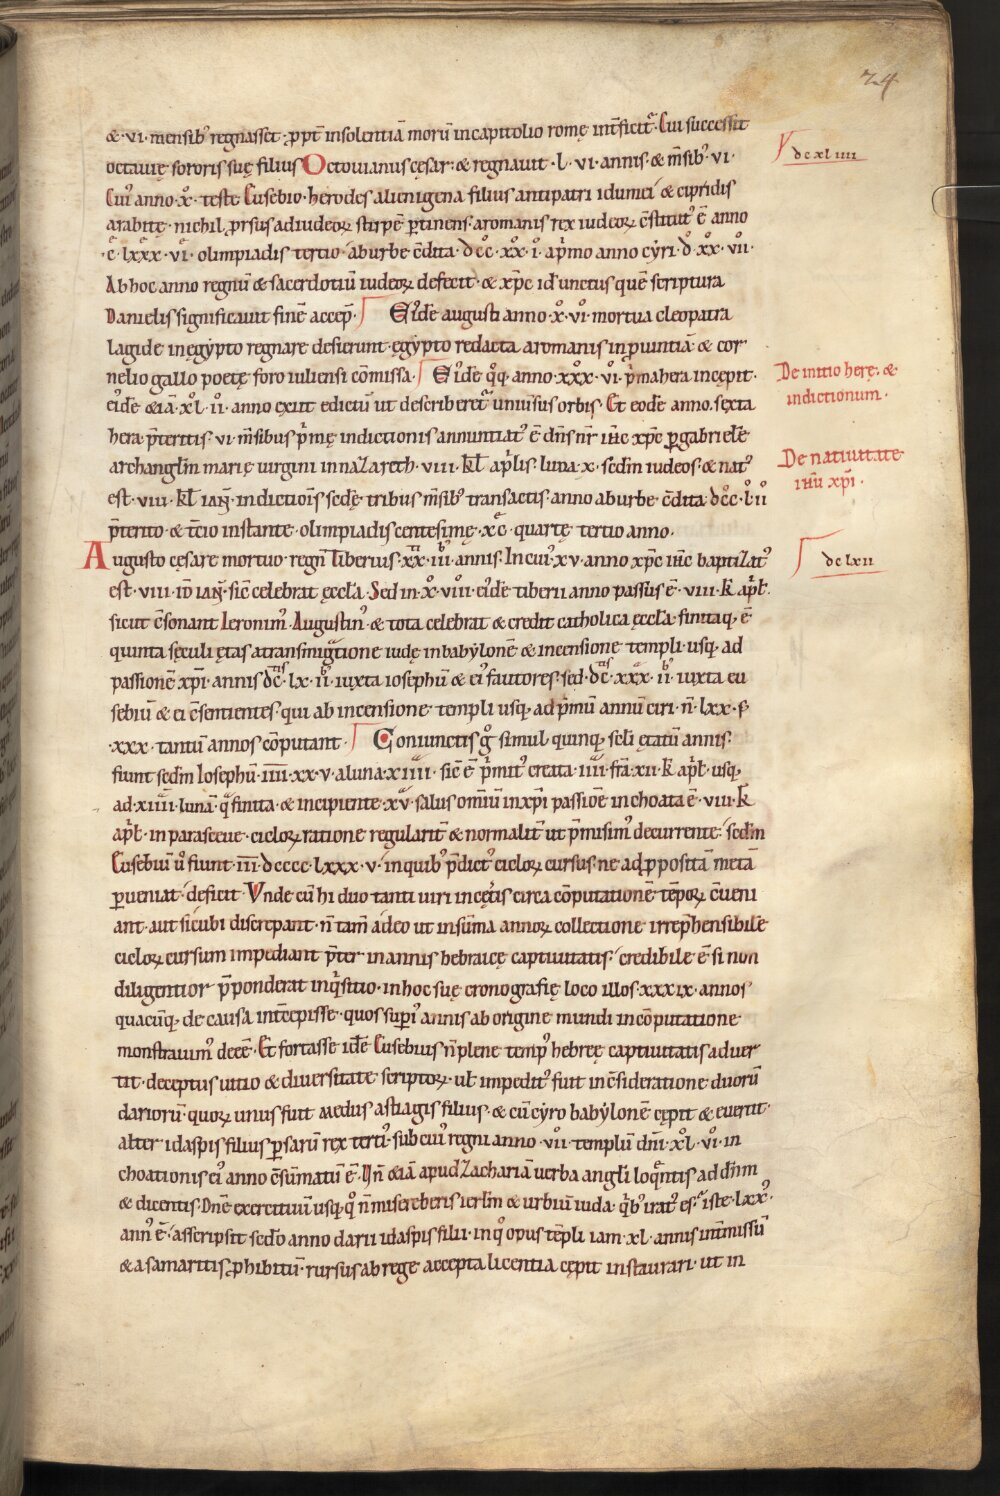 24
&·vi·mensib' regnasset· ꝓpt̄ insolentiā morū in capitolio romę int̄ficit᷑. Cui successit
octauię sororis suę filius Octouianus cęsar: & regnauit ·l·vi· annis· & m̄sib' vi·
dcxliiii
Cui' anno ·x̊· teste Eusebio· herodes alienigena filius antipatri idumei & cipridis
arabitę· nichil ꝓrsus ad iudeoꝝ stirpē ꝑtinens· a romanis rex iudeoꝝ c̄stitut' ē anno
·c̄·lxxx·vi· olimpiadis tertio· ab urbe c̄dita ·dcc·xx·i· a p̄mo anno cẏri ·d·xx·vii·
Ab hoc anno regnū & sacerdotiū iudeoꝝ defecit· & xp̄c id' unctus quē scriptura
Danielis significauit finē accep̄. Ei'dē augusti anno ·x̊·vi· mortua cleopatra
lagide in egẏpto regnare desierunt· ęgẏpto redacta a romanis in ꝓuintiā & cor
nelio gallo poetę foro iuliensi cōmissa. Ei'dē q̊q; anno ·xxx·vi· p̄ma hera incępit·
De initio herę· &
indictionum·
ei'dē &iā ·xl·ii· anno exiit edictū ut describeret᷑ uniu'sus orbis· Et eodē anno· sexta
hera· p̄teritis ·vi· m̄sibus p̄mę indictionis annuntiat' ē dn̄s nr̄ ih̄c xp̄c ꝑ gabrielē
archangl̄m marię uirgini in nazareth ·viii· kl̄ ap̄lis· luna ·x· sedm̄ iudeos· & nat'
De natiuitate
ih̄u xp̄i·
est ·viii· kl̄ ian̄· indictiōis sedę tribus m̄sib' transactis· anno ab urbe c̄dita ·dcc·lii
p̄terito· & t̄cio instante· olimpiadis centesimę ·xc· quartę tertio anno·
Augusto cęsare mortuo· regn̄ Tiberius ·xx·iii· annis· In cui' xv· anno xp̄c ih̄c baptizat'
dclxii
est ·viii· id̄ ian̄· sic̄ celebrat ęccl̄a· Sed in ·x̊·viii· ei'dē tiberii anno passus ē ·viii· k̄ ap̄l̄·
sicut c̄sonant Ieronim'· Augustin'· & tota celebrat & credit catholica ęccl̄a· finitaq; ē
quinta sęculi ętas a transmigratione iudę in babẏlonē & incensione templi usq; ad
passionē xp̄i· annis dc·lx·ii· iuxta iosephū & ei' fautores· sed ·dc·xxx·ii· iuxta eu
sebiū & ei c̄sentientes· qui ab incensione templi usq; ad p̄mū annū ciri· n̄ ·lxx· s;
·xxx· tantū annos cōputant· Coniunctis g̊ simul quinq; sc̄li ętatū annis·
fiunt sedm̄ Iosephū ·iiii·xx·v· a luna ·xiiii· sic̄ ē p̄mit' creata ·iiii· fr̄a ·xii· k̄ ap̄l̄· usq;
ad ·xiiii· lunā· q̄ finita· & incipiente ·xv· salus omiū in xp̄i passiōe inchoata ē ·viii· k̄
ap̄l̄· in parasceue· cicloꝝ ratione regularit̄ & normalit̄ ut p̄misim' decurrente· sedm̄
Eusebiū ů fiunt ·iii·dcccc·lxxx·v· in quib' p̄dict' cicloꝝ cursus ne ad ꝓpositā metā
ꝑueniat· deficit· Vnde cū hi duo tanti uiri in cęt̄is circa cōputationē tēpoꝝ c̄ueni
ant· aut sicubi discrepant· n̄ tam̄ adeo ut in sūma annoꝝ collectione irrep̄hensibilē
cicloꝝ cursum impediant p̄ter in annis hebraicę captiuitatis· credibile ē si non
diligentior p̄ponderat inq̄sitio· in hoc suę cronografię loco illos ·xxxix· annos
quacūq; de causa int̄cepisse· quos supi' annis ab origine mundi in cōputatione
monstrauim' deeē· Et fortasse idē Eusebius n̄ plene temp' hebreę captiuitatis aduer
tit· deceptus uitio & diuersitate scriptoꝝ· ul̄ impedit' fuit in c̄sideratione duorū
dariorū· quoꝝ unus fuit medus astiagis filius· & cū cẏro babẏlonē cępit & euertit·
alter idaspis filius ꝑsarū rex terti'· sub cui' regni anno ·vii· templū dn̄i ·xl·vi· in
choationis ei' anno c̄sūmatū ē· Vn̄ &iā apud Zachariā uerba angl̄i loq̄ntis ad dn̄m
& dicentis· Dn̄e exercituū usq; q̊ n̄ misereberis ierl̄m & urbiū iuda· q̄b' irat' es· iste ·lxx'·
ann' ē· asseripsit sedo anno darii idaspis filii· in q̊ opus tēpli iam ·xl· annis int̄missū
& a samaritis ꝓhibitū· rursus ab rege accepta licentia cępit instaurari· ut in